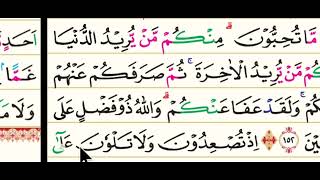 مَّا تُحِبُّوْنَ ۗ مِنْكُمْ مَّنْ يُّرِيْدُ الدُّنْيَا
مَّنْ يُّرِيْدُ الْاٰخِرَةَ ۚ ثُمَّ صَرَفَكُمْ عَنْهُمْ
وَلَقَدْ عَفَا عَنْكُمْ ۗ وَاللّٰهُ ذُوْ فَضْلٍ عَلَى
١٥٢ اِذْ تُصْعِدُوْنَ وَلَا تَلْوٗنَ عَلٰٓى
اَحَدٍ
غَمًّا
وَلَا مَا